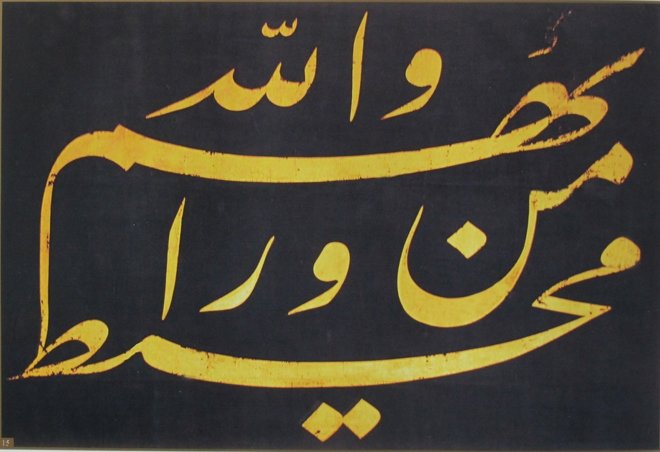 والله
من ورائهم
محيط
15